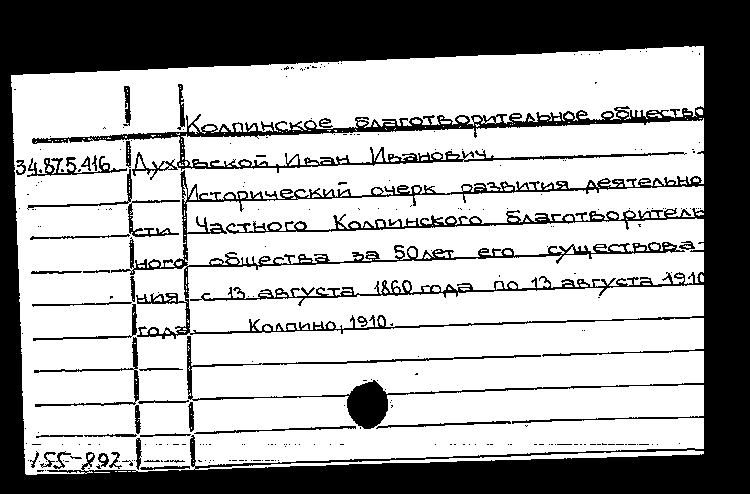 Колпинское благотворительное общество
34.87.5.416. Духовской, Иван Иванович.
Исторический очерк развития деятельно
сти Частного Колпинского благотворитель
ного общества за 50 лет его существова-
ния с 13 августа 1860 года по 13 августа 1910
года. Колпино, 1910.
155-892.